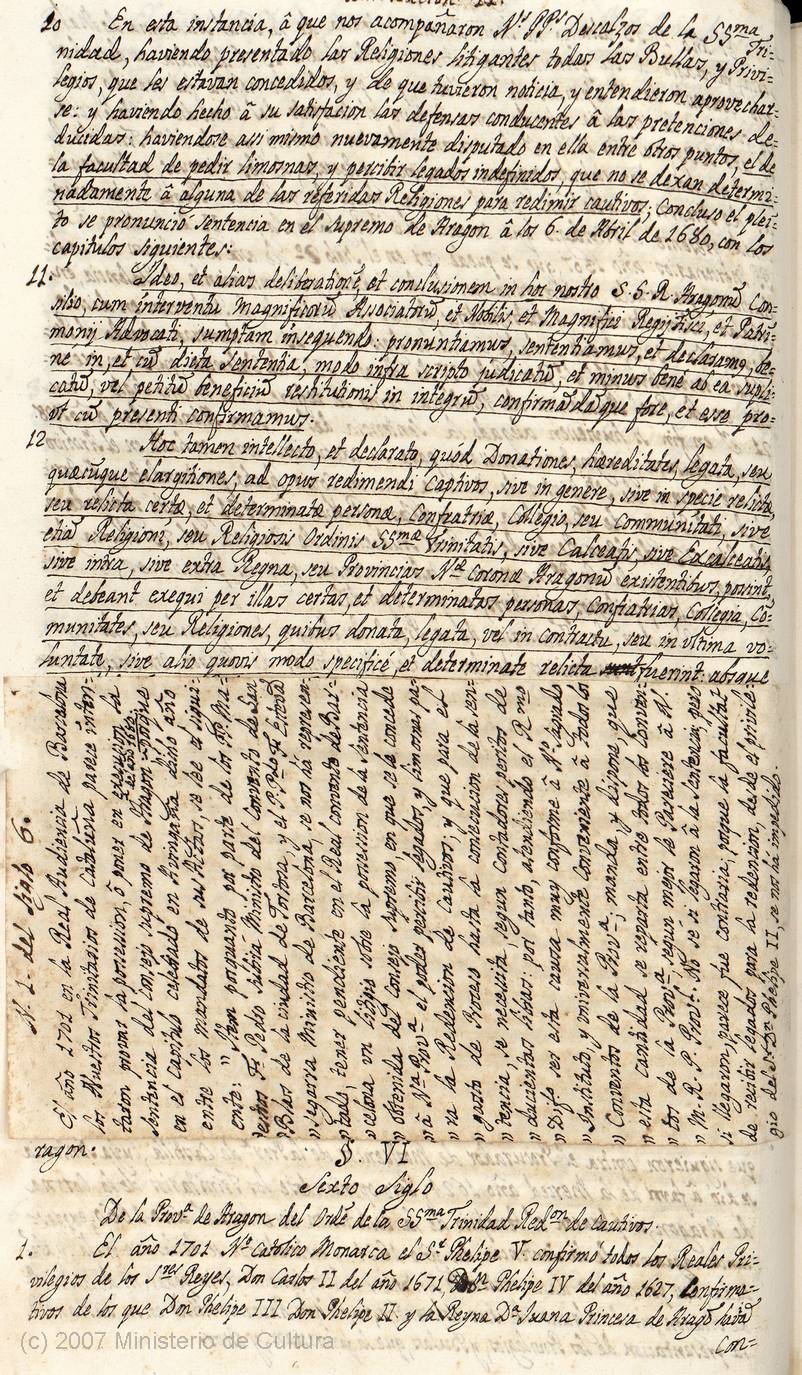 10 En esta instancia, â que nos acompañaron Ns. PPs. Descalzos de la SSma. Tri-
nidad, haviendo presentado las Religiones litigantes todas las Bullas, y Privi-
legios, que les estavan concedidos, y de que tuvieron noticia, y entendieron aprovechar-
se: y haviendo hecho â su satisfacion las defensas conducentes â las pretenciones de-
ducidas: haviendose assi mismo nuevamente disputado en ella entre otros puntos, el de
la facultad de pedir limosnas, y percibir legados indefinidos, que no se dexan determi-
nadamente â alguna de las referidas Religiones para redimir cautivos; Concluso el pley-
to se pronunció sentencia en el Supremo de Aragon â los 6. de Abril de 1680, con los
capitulos siguientes:
11. Ideo, et alias deliberationẽ, et conclusionem in hoc nostro S. S. R. Aragonũ Con-
silio, cum interventu Magnificorũ Associatorũ, et Nobilis, et Magnifici Regij Fisci, et Patri-
monij Advocati, sumptam insequendo: pronuntiamus, sententiamus, et declaramus, be-
ne in, et cũ dicta sententia, modo infra scripto judicatũ, et minus bene ab ea suppli-
catũ, vel petitũ beneficiũ restitutionis in integrũ, confirmãdãque fore, et esse pro-
vt cũ presenti confirmamus.
12 Hoc tamen intellecto, et declarato, quód Donationes, hæreditates, legata, seu
quæcũque elargitiones, ad opus redimendi Captivos, sive in genere, sive in specie relicta,
seu relicta certæ, et determinatæ personæ, Confratriæ, Collegio, seu Communitati, sive
etiã Religioni, seu Religiosis Ordinis SSmæ Trinitatis, sive Calceatis, sive Excalceatis,
sive intra, sive extra Regna, seu Provincias Næ Coronæ Aragonũ existentibus, possint,
et debeant exequi per illas certas, et determinatas personas, Confratrias, Collegia, Cõ-
munitates, seu Religiones, quibus donata, legata, vel in contractu, seu in vltima vo-
luntate, sive alio quovis modo specificé, et determinate relicta fuerint: absque
N. 1. del siglo 6.
El año 1701 en la Real Audiencia de Barcelona
los Nuestros Trinitarios de Cathaluña parece inten-
taron provar la possession, ô poner en execucion la
sentencia del Consejo supremo de Aragon: porque
en el Capitulo celebrado en dicho año
entre los mandatos de sus Actas, se lee el sigui-
ente: " Item porquanto por parte de los PPs. Ma-
estros Fr. Pedro Subirá Ministro del Convento de San
Blas de la ciudad de Tortosa, y el P. Pdo. Fr.
" Segarra Ministro de Barcelona, se nos ha represen-
" tado, tener pendiente en el Real convento de Bar-
" celona vn litigio sobre la possession de la sentencia
" obtenida del Consejo Supremo, en que se le concede
" â Na. Prova. el poder percibir legados, y limosnas pa-
" ra la Redencion de cautivos, y que para el
" gasto de Processo hasta la consecucion de la sen-
" tencia, se necessita, segun contadores peritos de
" ducientas libras: por tanto, atendiendo el Rmo.
" Dife. ser esta causa muy conforme â No. sagrado
" Instituto, y universalmente conveniente â todos los
" Conventos de la Prova.; manda, y dispone, que
" esta cantidad se reparta entre todos los Conven-
" tos de la Prova., segun mejor le Pareciere â N.
" M. R. P. Provl. No sé si llegaron â la sentencia, pero
si llegaron, parece fue contraria; porque la facultat
de recibir legados para la redencion, desde el privile-
gio del Sr. Dn. Phelipe II, se nos ha impedido.
ragon.
§. VI
Sexto Siglo
De la Prova. de Aragon del Ordẽ de la SSma Trinidad Redon de cautivos.
1. El año 1701 No. Catolico Monarca el Sr. Phelipe V. confirmó todos los Reales Pri-
vilegios de los Sres. Reyes, Don Carlos II del año 1671, Dn. Phelipe IV del año 1627, Confirma-
tivos de los que Don Phelipe III Don Phelipe II. y la Reyna Da. Juana Princesa de Aragõ havia
con=
(c) 2007 Ministerio de Cultura